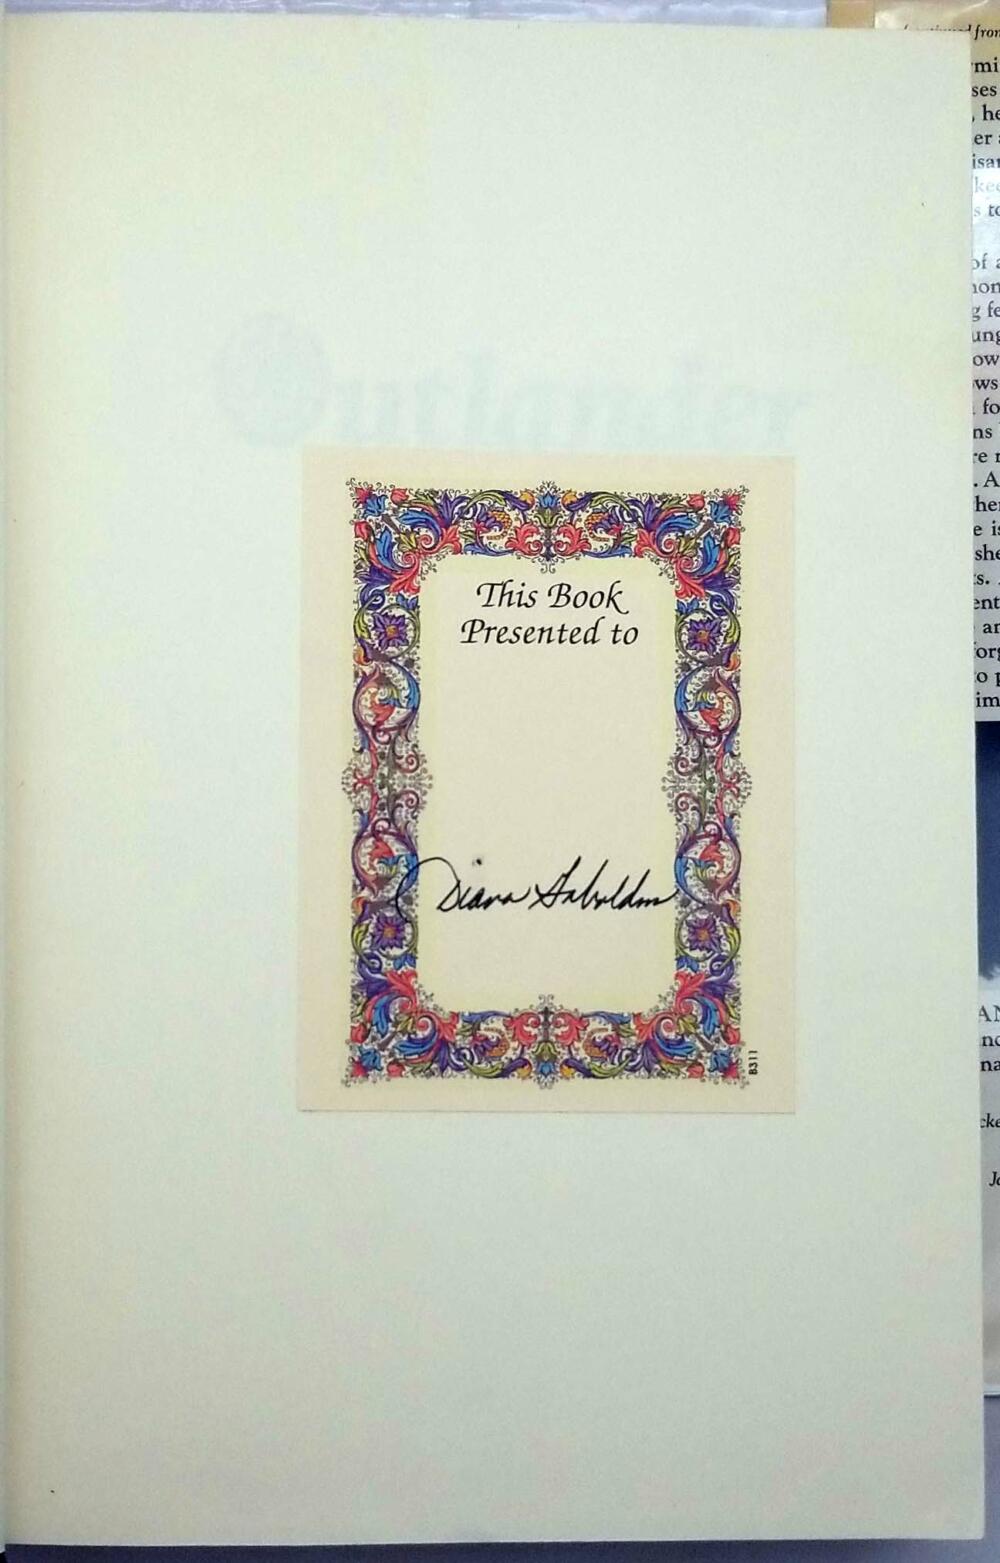 This Book
Presented to
Diana Gabaldon
B311
from
mi
ses
, he
er
isar
kee
s to
of a
g fe
ung
ow
ws
fo
ns
re r
. A
her
e is
she
s.
ent
an
forg
to p
im
AN
nd
na
cke
Ja